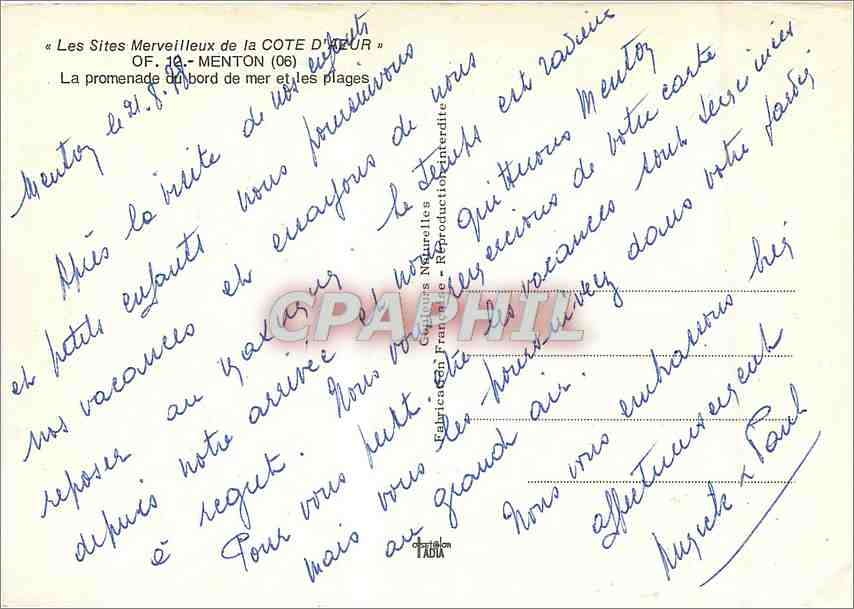 « Les Sites Merveilleux de la COTE D'AZUR »
OF. 10 - MENTON (06)
La promenade du bord de mer et les plages
Menton le 21.8.88
Après la visite de nos enfants
et petits enfants nous poursuivons
nos vacances et essayons de nous
reposer au maximum. Le temps est radieux
depuis notre arrivée et nous quitterons Menton
à regret. Nous vous remercions de votre carte
Pour vous peut-être les vacances sont terminées
mais vous les poursuivez dans votre jardin
au grand air.
Nous vous embrassons bien
affectueusement
& Paul
Couleurs Naturelles
Fabrication Française - Reproduction interdite
CPAPHIL